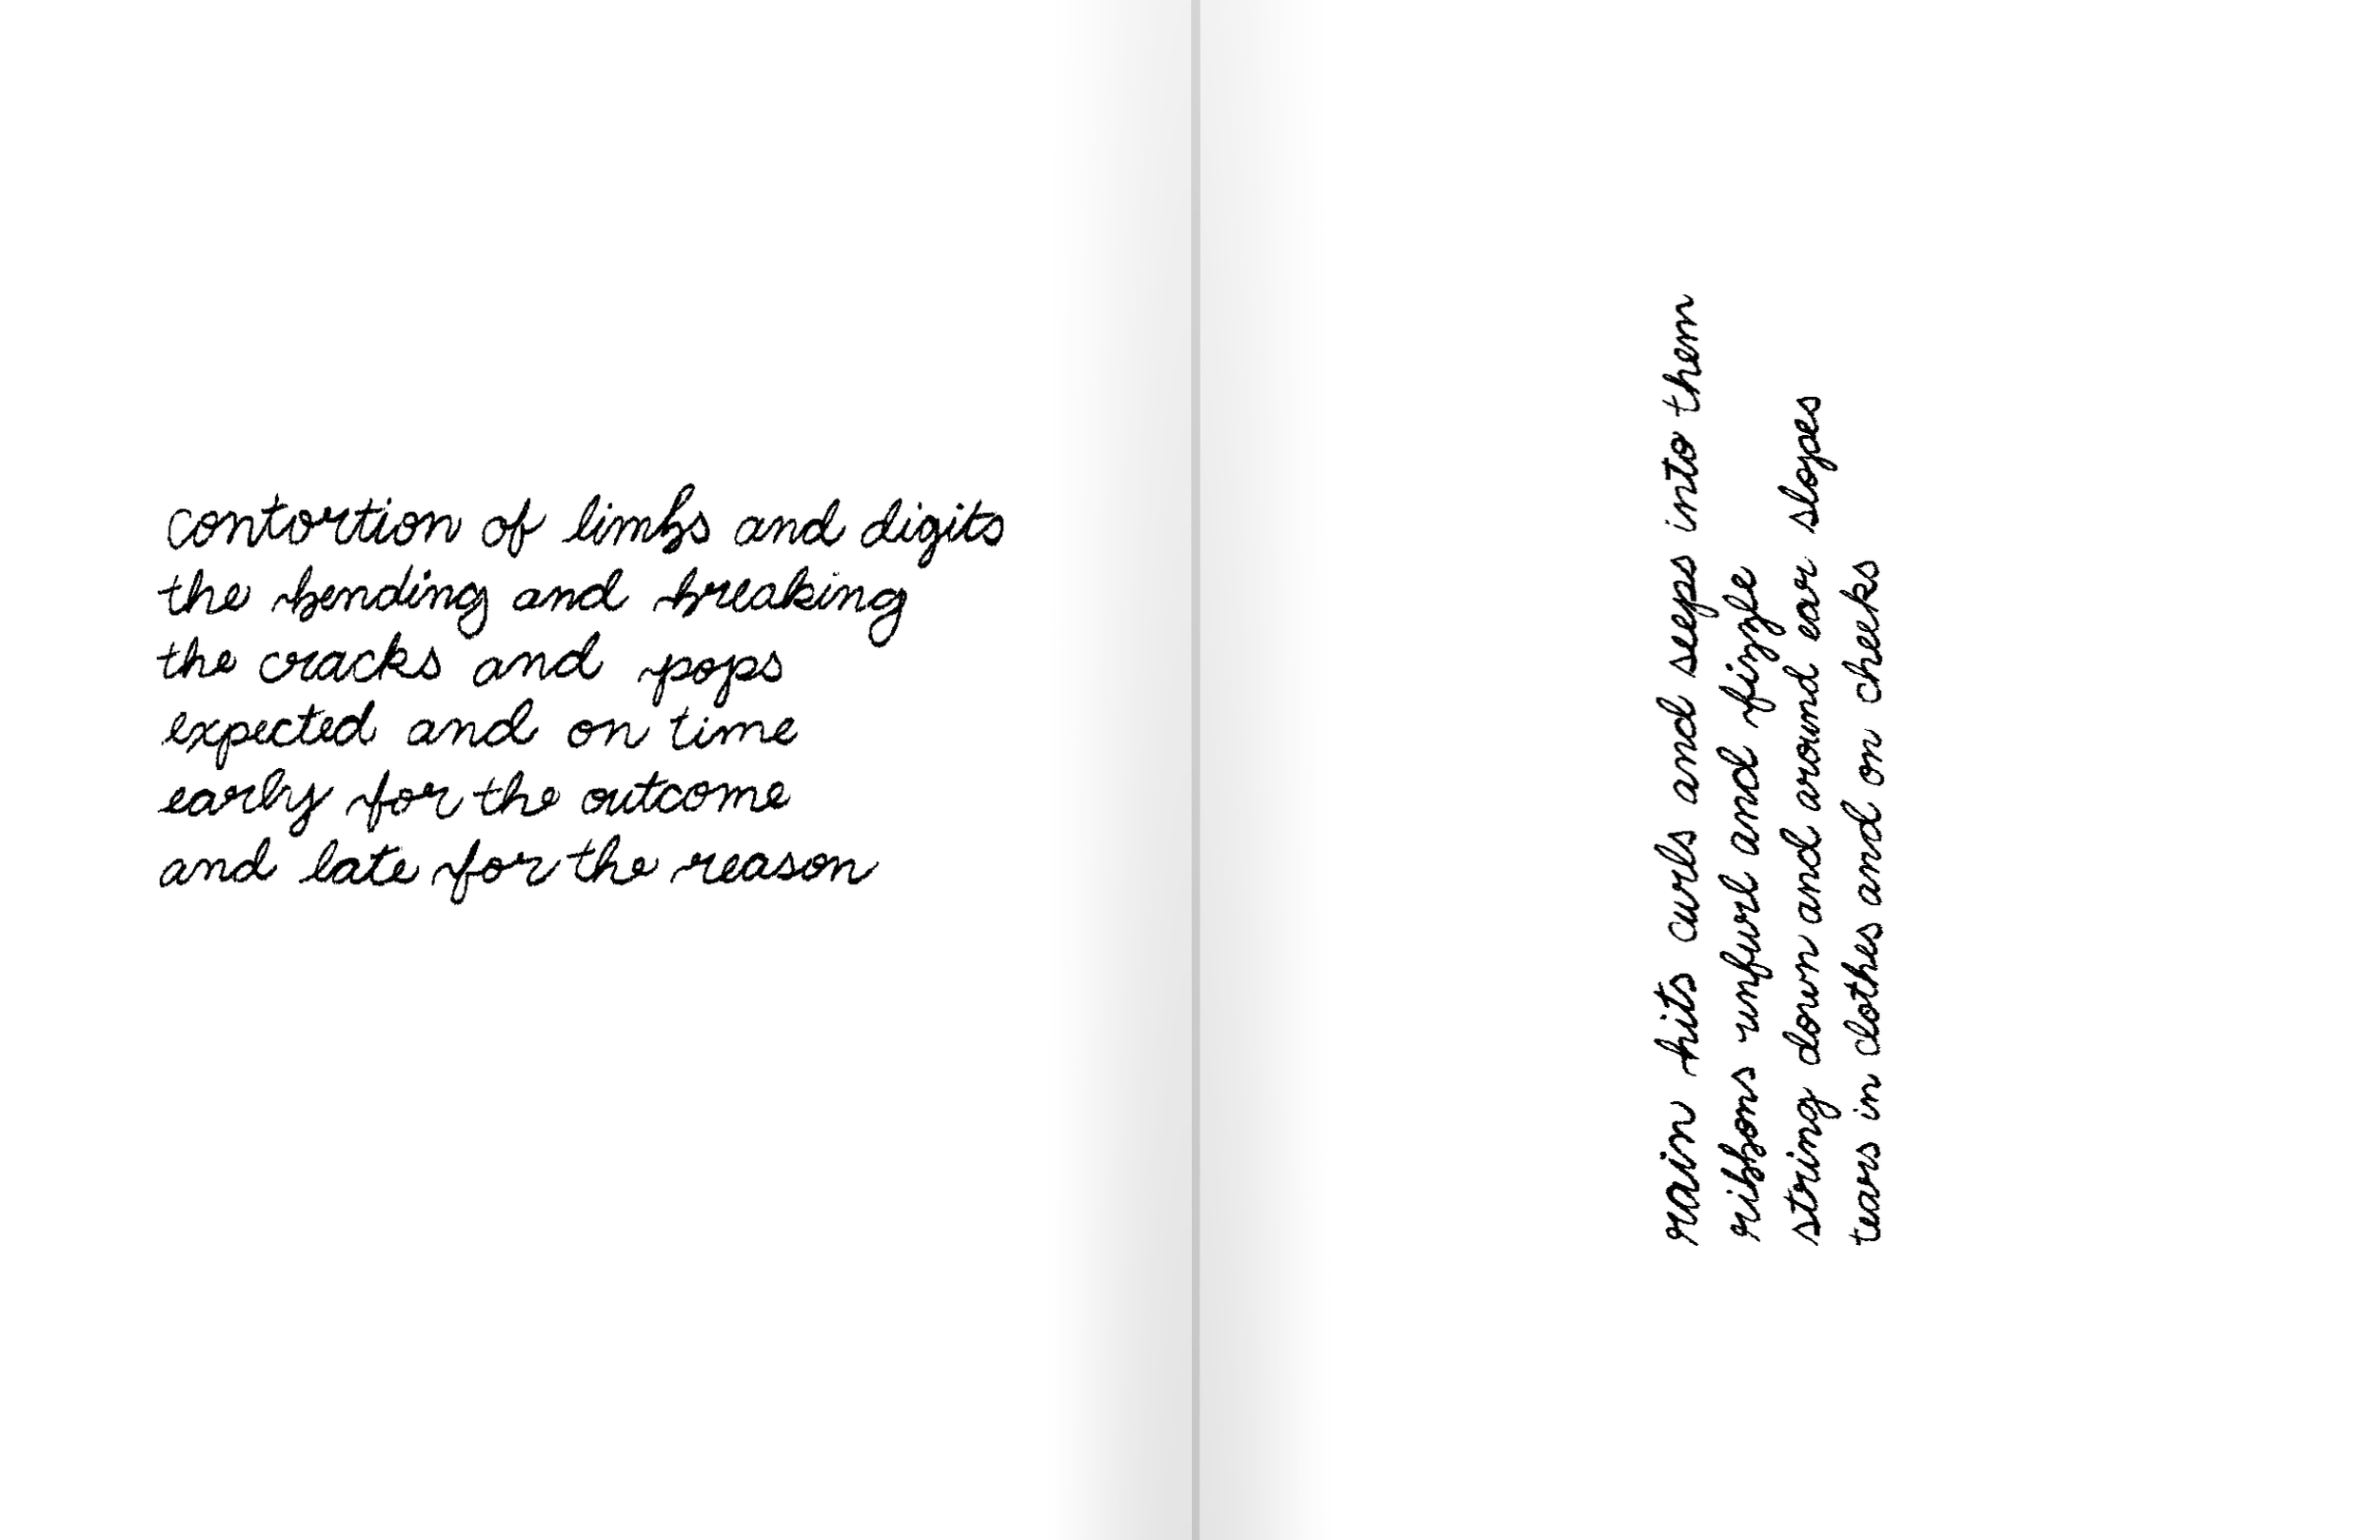 contortion of limbs and digits
the bending and breaking
the cracks and pops
expected and on time
early for the outcome
and late for the reason
rain hits curls and seeps into them
ribbons unfurl and fizzle
string down and around ear slopes
tears in clothes and on cheeks